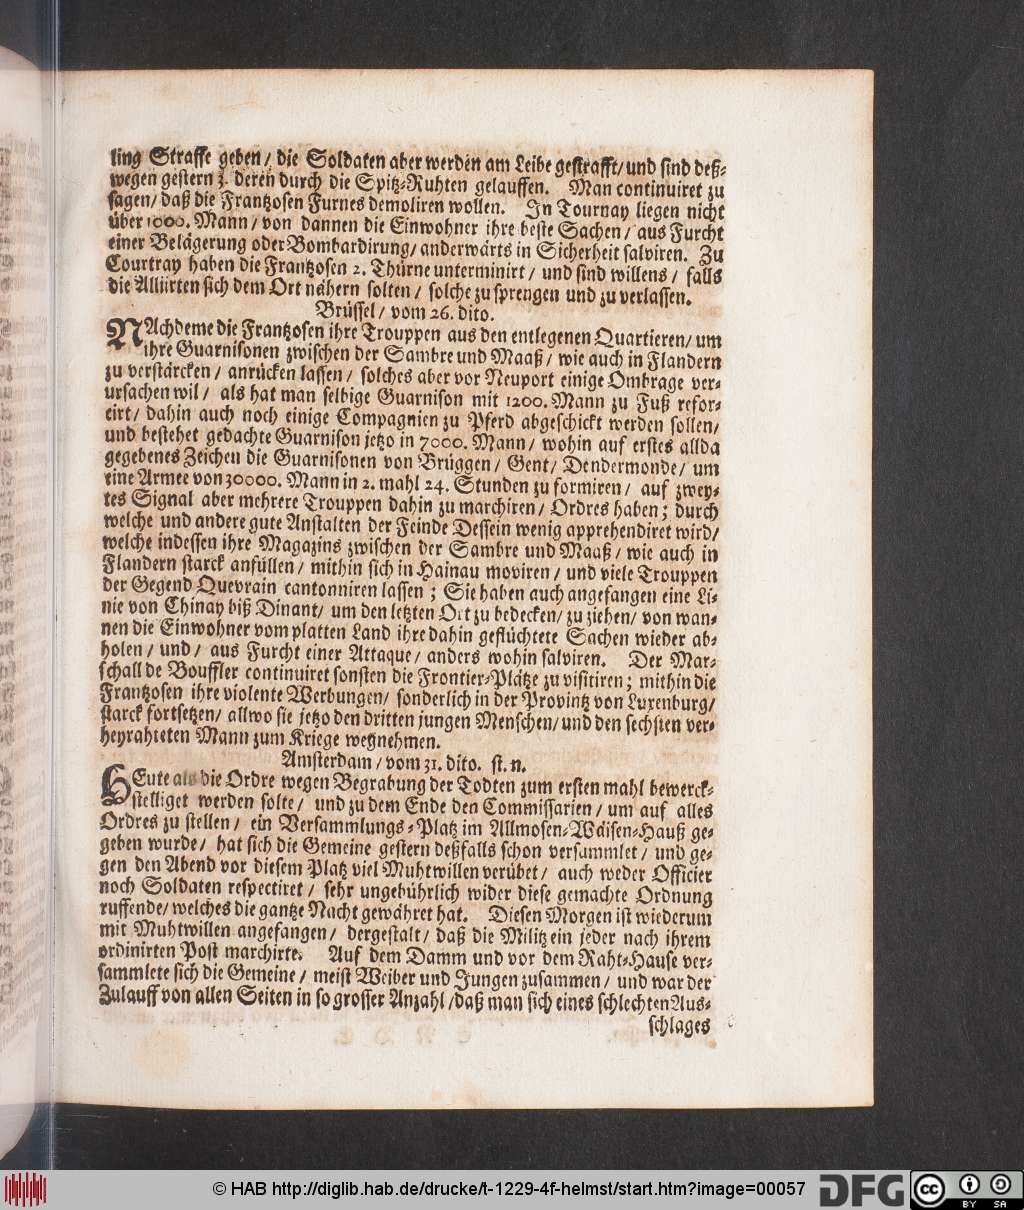 ling Straffe geben / die Soldaten aber werden am Leibe gestrafft / und sind deß-
wegen gestern 3. deren durch die Spitz-Ruhten gelauffen. Man continuiret zu
sagen / daß die Frantzosen Furnes demoliren wollen. In Tournay liegen nicht
über 1000. Mann / von dannen die Einwohner ihre beste Sachen / aus Furcht
einer Belägerung oder Bombardirung / anderwärts in Sicherheit salviren. Zu
Courtray haben die Frantzosen 2. Thürne unterminirt / und sind willens / falls
die Alliirten sich dem Ort nähern solten / solche zu sprengen und zu verlassen.
Brüssel / vom 26. dito.
NAchdeme die Frantzosen ihre Trouppen aus den entlegenen Quartieren / um
ihre Guarnisonen zwischen der Sambre und Maaß / wie auch in Flandern
zu verstärcken / anrücken lassen / solches aber vor Neuport einige Ombrage ver-
ursachen wil / als hat man selbige Guarnison mit 1200. Mann zu Fuß refor-
cirt / dahin auch noch einige Compagnien zu Pferd abgeschickt werden sollen /
und bestehet gedachte Guarnison jetzo in 7000. Mann / wohin auf erstes allda
gegebenes Zeichen die Guarnisonen von Brüggen / Gent / Dendermonde / um
eine Armee von 30000. Mann in 2. mahl 24. Stunden zu formiren / auf zwey-
tes Signal aber mehrere Trouppen dahin zu marchiren / Ordres haben ; durch
welche und andere gute Anstalten der Feinde Dessein wenig apprehendiret wird /
welche indessen ihre Magazins zwischen der Sambre und Maaß / wie auch in
Flandern starck anfüllen / mithin sich in Hainau moviren / und viele Trouppen
der Gegend Quevrain cantonniren lassen ; Sie haben auch angefangen eine Li-
nie von Chinay biß Dinant / um den letzten Ort zu bedecken / zu ziehen / von wan-
nen die Einwohner vom platten Land ihre dahin geflüchtete Sachen wieder ab-
holen / und / aus Furcht einer Attaque / anders wohin salviren. Der Mar-
schall de Bouffler continuiret sonsten die Frontier-Plätze zu visitiren ; mithin die
Frantzosen ihre violente Werbungen / sonderlich in der Provintz von Luxenburg /
starck fortsetzen / allwo sie jetzo den dritten jungen Menschen / und den sechsten ver-
heyrahteten Mann zum Kriege wegnehmen.
Amsterdam / vom 31. dito. st. n.
HEute als die Ordre wegen Begrabung der Todten zum ersten mahl bewerck-
stelliget werden solte / und zu dem Ende den Commissarien / um auf alles
Ordres zu stellen / ein Versammlungs-Platz im Allmosen-Wäisen-Hauß ge-
geben wurde / hat sich die Gemeine gestern deßfalls schon versammlet / und ge-
gen den Abend vor diesem Platz viel Muhtwillen verübet / auch weder Officier
noch Soldaten respectiret / sehr ungebührlich wider diese gemachte Ordnung
ruffende / welches die gantze Nacht gewähret hat. Diesen Morgen ist wiederum
mit Muhtwillen angefangen / dergestalt / daß die Militz ein jeder nach ihrem
ordinirten Post marchirte. Auf dem Damm und vor dem Raht-Hause ver-
sammlete sich die Gemeine / meist Weiber und Jungen zusammen / und war der
Zulauff von allen Seiten in so grosser Anzahl / daß man sich eines schlechten Aus-
schlages
© HAB http://diglib.hab.de/drucke/t-1229-4f-helmst/start.htm?image=00057
DFG
cc
BY SA